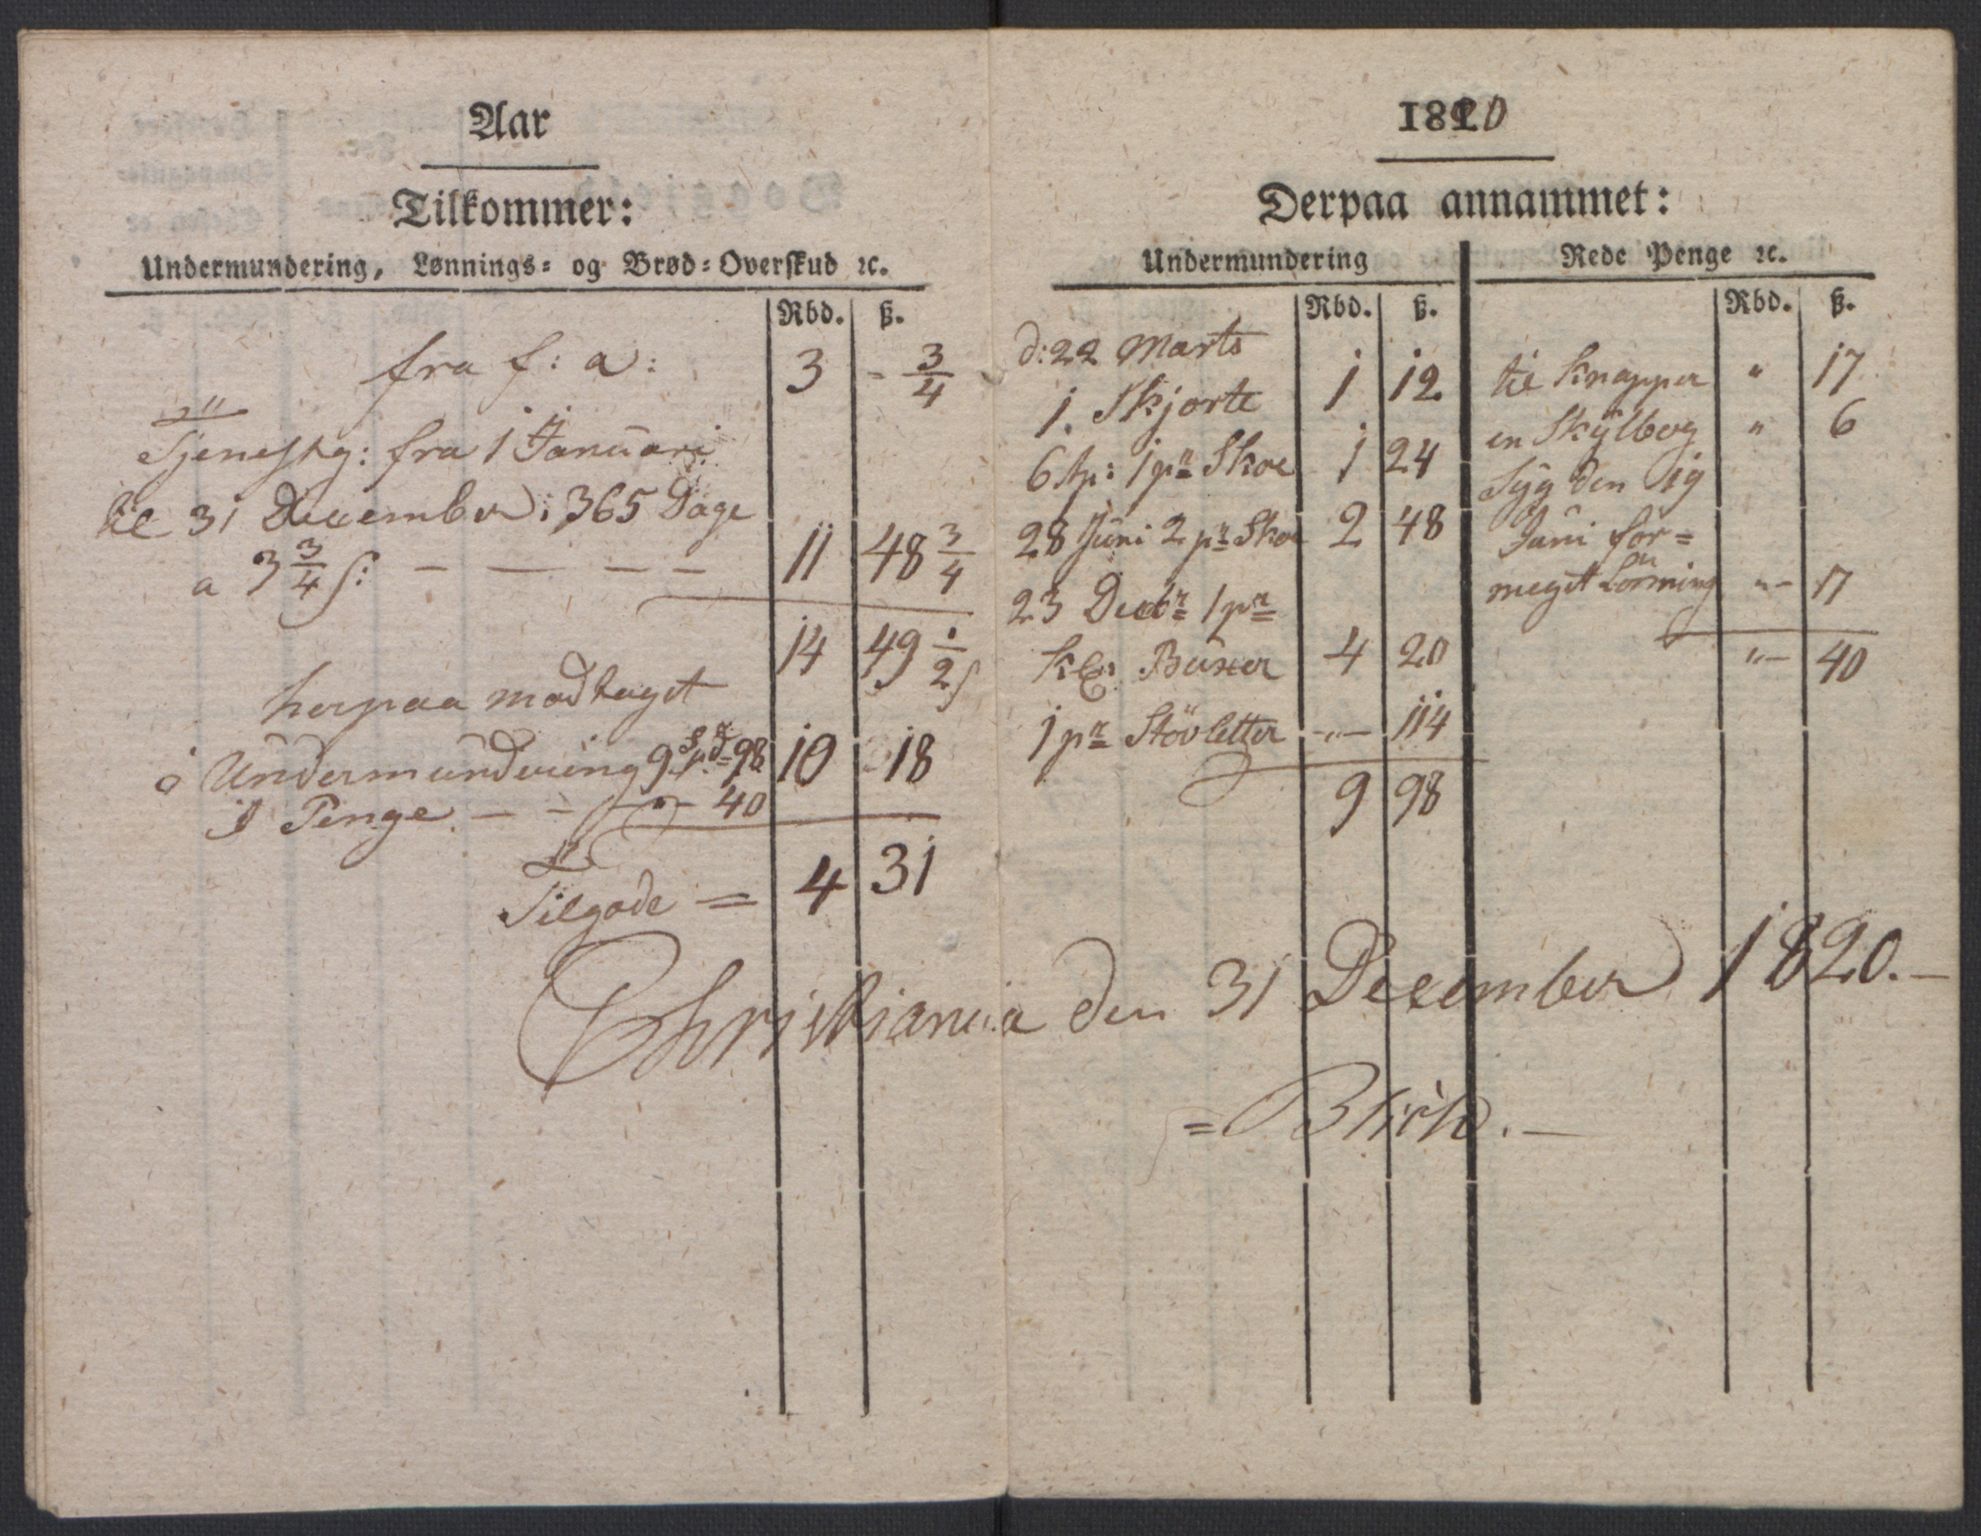 Aar
Tilkommer:
Undermundering, Lønnings= og Brød=Overskud ꝛc.
Rbd. ß.
fra f: a: 3 - 3/4
Tjenestg: fra 1 Januari
til 31 December; 365 Dage
a 3 3/4 ſ: - - - - 11 48 3/4
14 49 1/2 ſ
herpaa modtaget
i Undermundering 9 Spd 98 10 18
I Penge - - " - 40
Tilgode = 4 31
1820
Derpaa annammet:
Undermundering
Rbd. ß.
d: 22 Marts
1. Skjorte 1 12
6 Ap: 1 pr Skoe 1 24
28 Juni 2 pr Skoe 2 48
23 Decbr 1 pr
Kl: Buxer 4 20
1 pr Stövletter -"- 114
9 98
Rede Penge ꝛc.
Rbd. ß.
til Knapper " 17
en Skylbog " 6
Syg den 19
Juni for=
meget Lønning "- 17
"- 40
Christiania den 31 December 1820.-